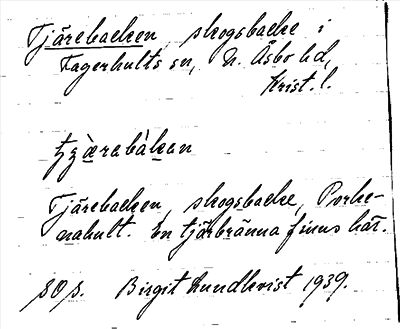 Tjärebacken, skogsbacke i
Fagerhults sn, N. Åsbo hd,
Krist. l.
Tjärebacken, skogsbacke, Porke-
nahult. En tjärbränna finns här.
Birgit Lundkvist 1939.